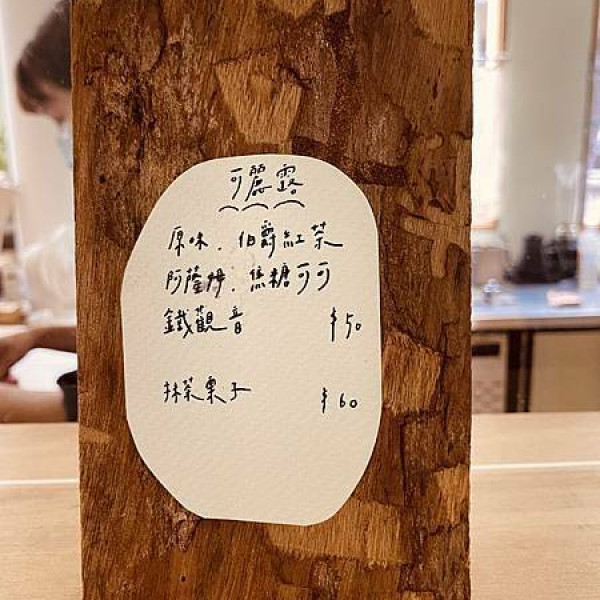 可麗露
原味．伯爵紅茶
阿薩姆．焦糖可可
鐵觀音 $50
抹茶栗子 $60